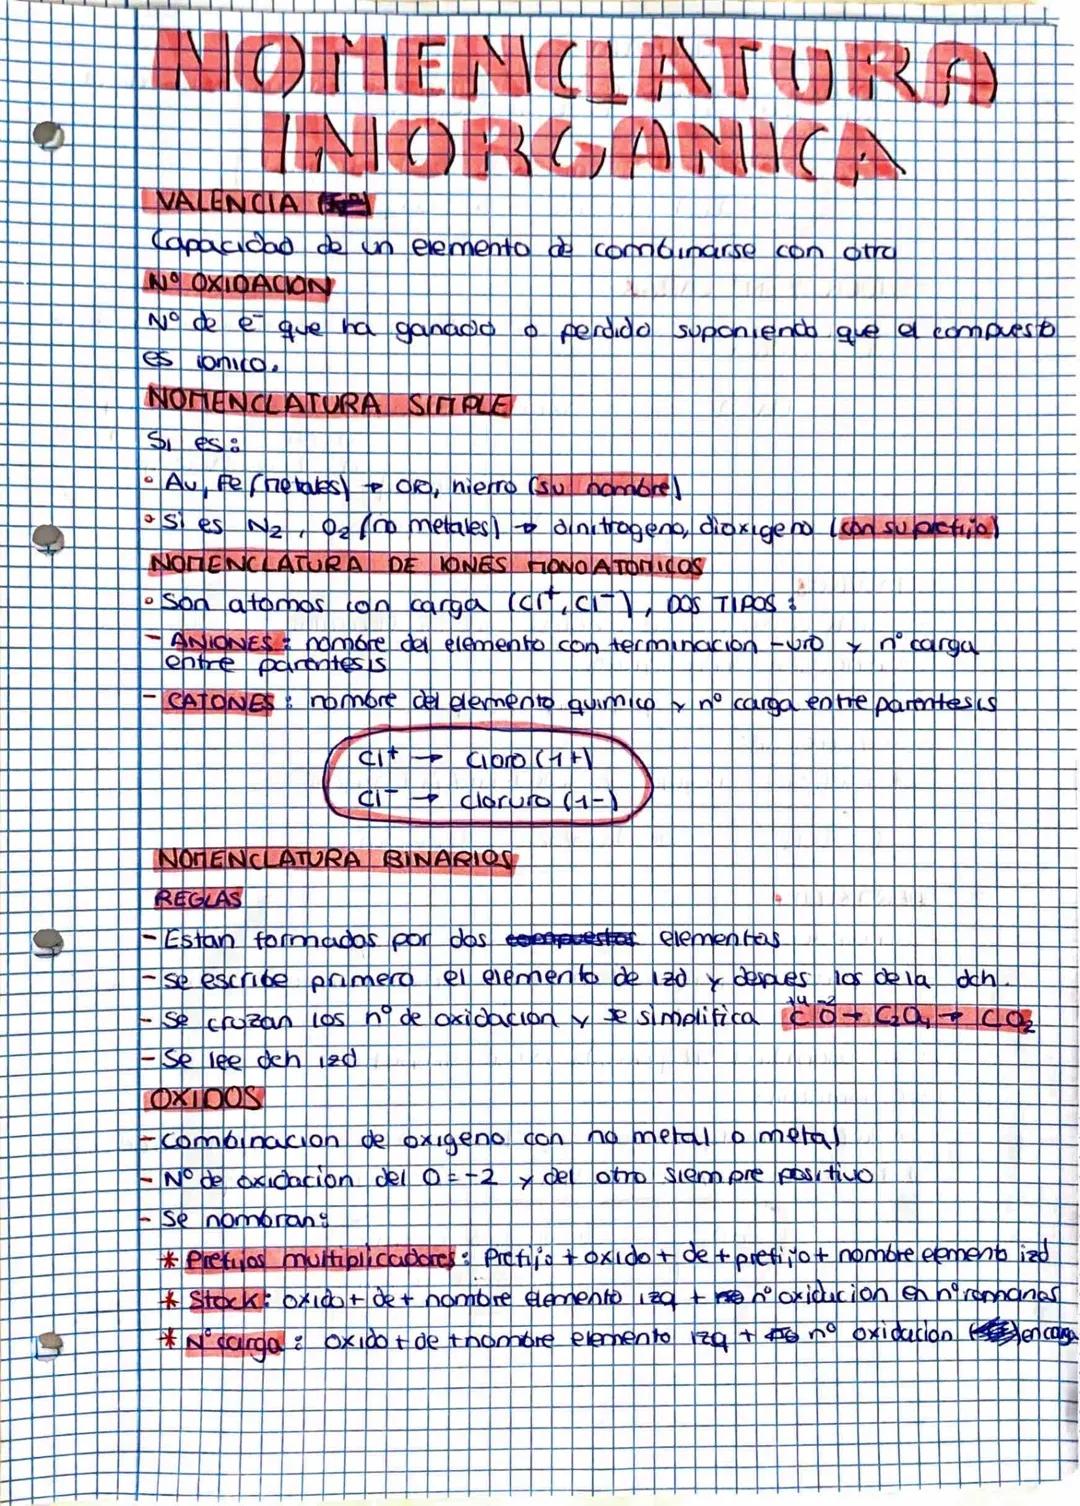 NOMENCLATURA
INORGANICA
VALENCIA
Capacidad de un elemento de combinarse con otro
Nº OXIDACION
Nº de e⁻ que ha ganado o perdido suponiendo que el compuesto
es ionico.
NOMENCLATURA SIMPLE
Si es:
• Au, Fe (metales) → oro, hierro (su nombre)
• Si es N₂, O₂ (no metales) → dinitrogeno, dioxigeno (con su prefijo)
NOMENCLATURA DE IONES MONOATOMICOS
• Son atomos con carga (Cl⁺, Cl⁻), DOS TIPOS:
- ANIONES: nombre del elemento con terminacion -uro y nº carga
entre parentesis
- CATONES: nombre del elemento quimico y nº carga entre parentesis
Cl⁺ → Cloro (1+)
Cl⁻ → cloruro (1-)
NOMENCLATURA BINARIOS
REGLAS
- Estan formados por dos compuestos elementos
- se escribe primero el elemento de izd y despues los de la dch.
- Se cruzan los nº de oxidacion y se simplifica C⁺⁴ O⁻² → C₂O₄ → CO₂
- Se lee dch izd
OXIDOS
- combinacion de oxigeno con no metal o metal
- Nº de oxidacion del O = -2 y del otro siempre positivo
- Se nombran:
* Prefijos multiplicadores: Prefijo + oxido + de + prefijo + nombre elemento izd
* Stock: oxido + de + nombre elemento izq + nº oxidicion en nº romanos
* Nº carga: oxido + de + nombre elemento izq + nº oxidacion en carga